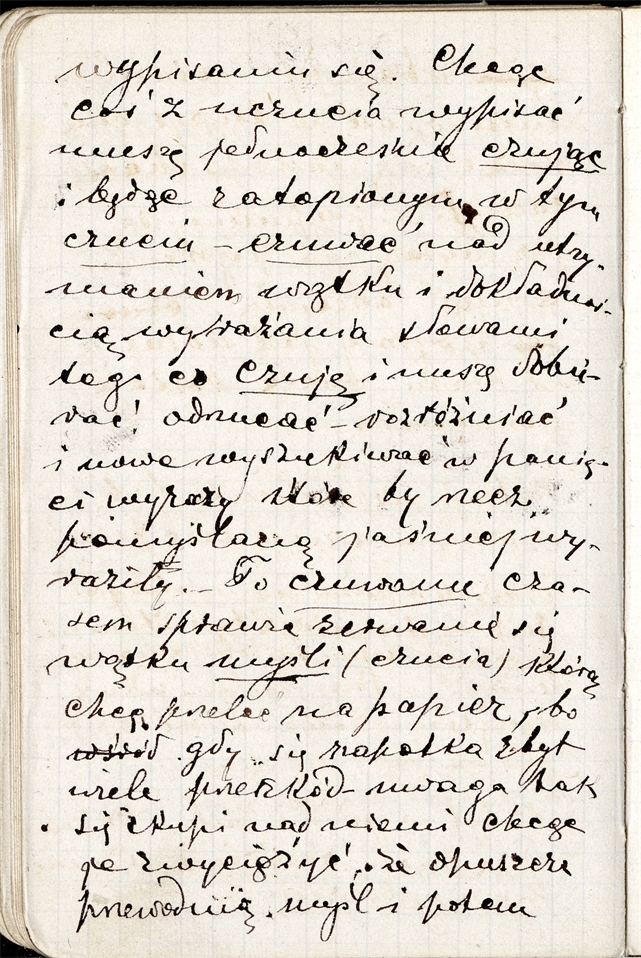 wypisaniu się. Chcąc
coś z uczucia wypisać
muszę jednocześnie czując
i będąc zatopionym w tym
czuciu – czuwać nad utrzy-
maniem wątku i dokładnoś-
cią wyrażania słowami
tego co czuję i muszę dobie-
rać, odrzucać – rozróżniać
i nowe wyszukiwać w pamię-
ci wyrazy które by rzecz
pomyślaną jaśniej wy-
raziły. – To czuwanie cza-
sem sprawia zerwanie się
wątku myśli (czucia) którą
chcę przelać na papier, bo
gdy się napotka zbyt
wiele przeszkód – uwaga tak
się skupi nad niemi chcąc
je zwyciężyć, że opuszcza
przewodnią myśl i potem